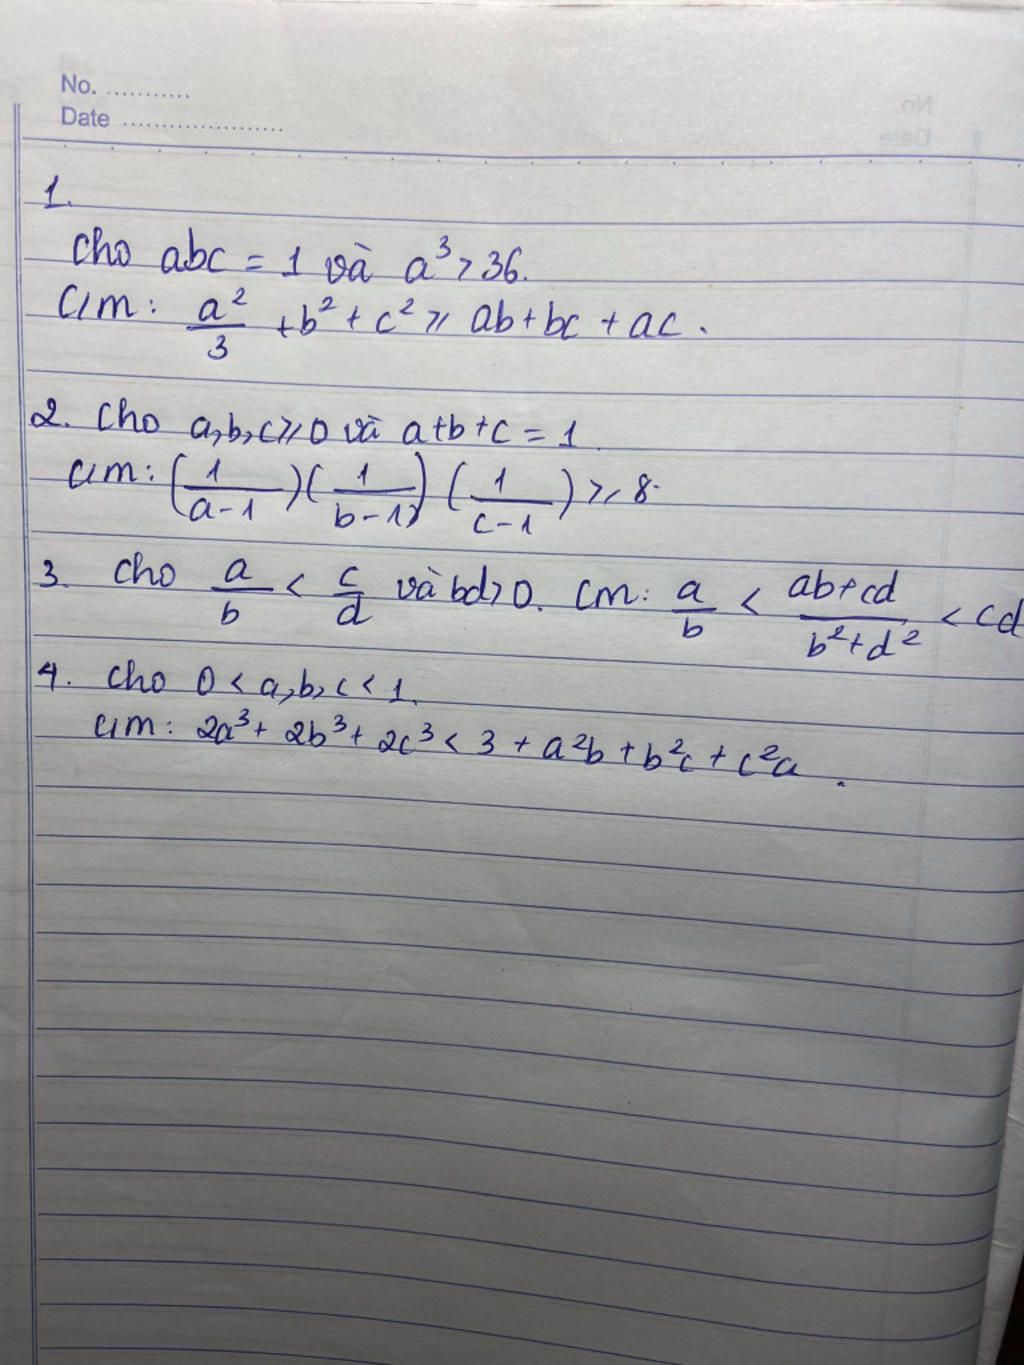 No. ...........
Date .....................
1.
Cho abc = 1 và a³ > 36.
C/m: a²/3 + b² + c² ≥ ab + bc + ac.
2. Cho a, b, c ≥ 0 và a+b+c = 1
C/m: (1/(a-1))(1/(b-1))(1/(c-1)) ≥ 8.
3. Cho a/b < c/d và bd > 0. Cm: a/b < (ab+cd)/(b²+d²) < cd
4. Cho 0 < a, b, c < 1.
C/m: 2a³ + 2b³ + 2c³ < 3 + a²b + b²c + c²a.